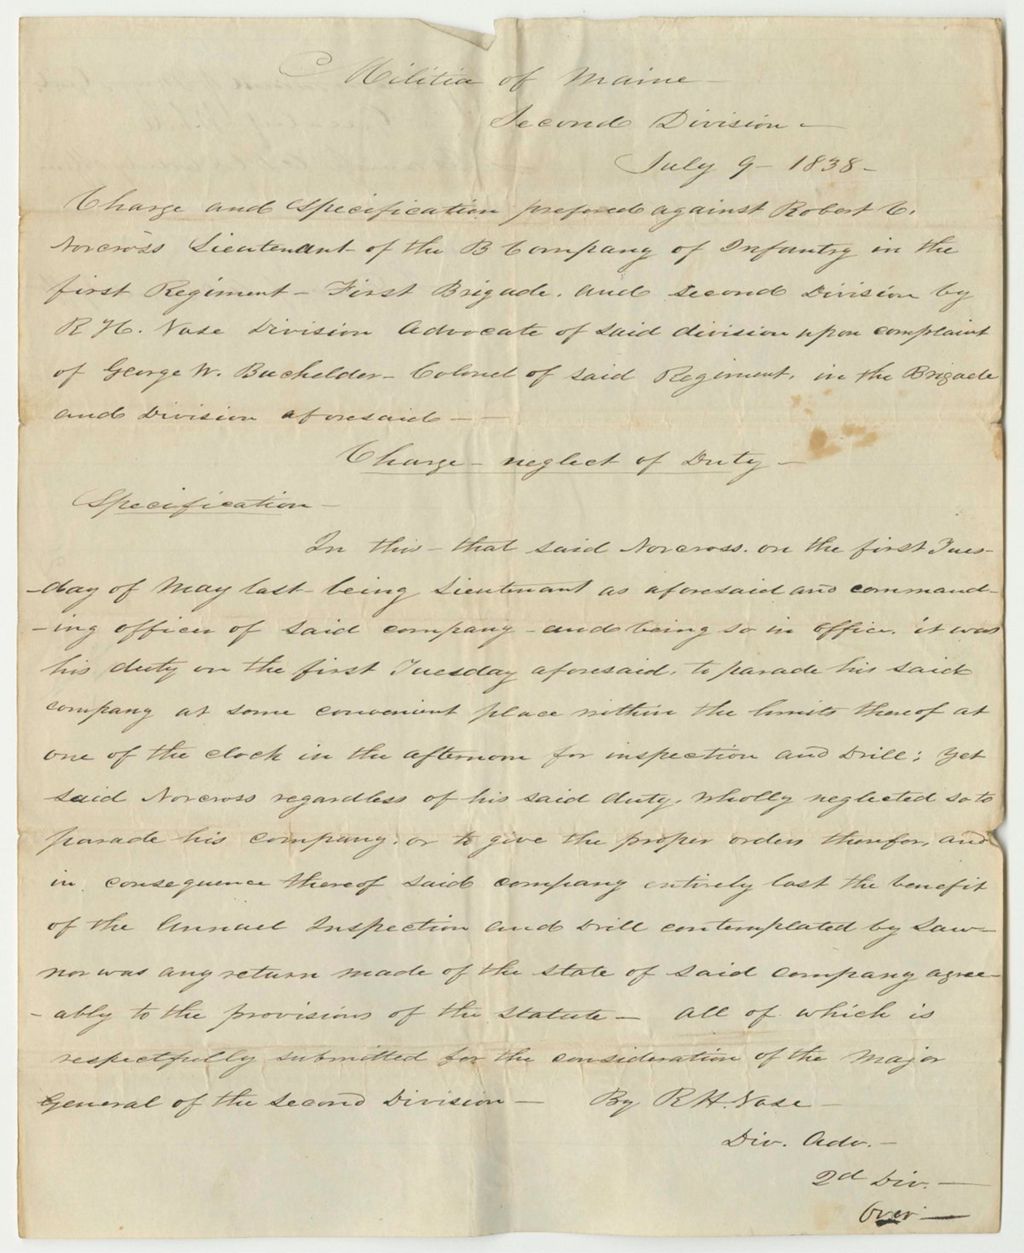 Militia of Maine -
Second Division -
July 9 - 1838 -
Charge and Specification prefered against Robert C.
Norcross Lieutenant of the B Company of Infantry in the
first Regiment - First Brigade. and Second Division by
R H. Vose Division Advocate of said division upon complaint
of George W. Bachelder - Colonel of said Regiment, in the Brigade
and Division aforesaid - -
Charge - neglect of Duty -
Specification -
In this - that said Norcross. on the first Tues-
-day of May last - being Lieutenant as aforesaid and command-
-ing officer of said company - and being so in office. it was
his duty on the first Tuesday aforesaid, to parade his said
company at some convenient place within the limits thereof at
one of the clock in the afternoon for inspection and Drill; yet
said Norcross regardless of his said duty, wholly neglected so to
parade his company, or to give the proper orders therefor, and
in consequence thereof said company entirely lost the benefit
of the Annual Inspection and Drill contemplated by Law -
nor was any return made of the state of said company agree-
-ably to the provisions of the statute - all of which is
respectfully submitted for the consideration of the Major
General of the Second Division - By R H. Vose -
Div. Adv. -
2d Div. -
Over -